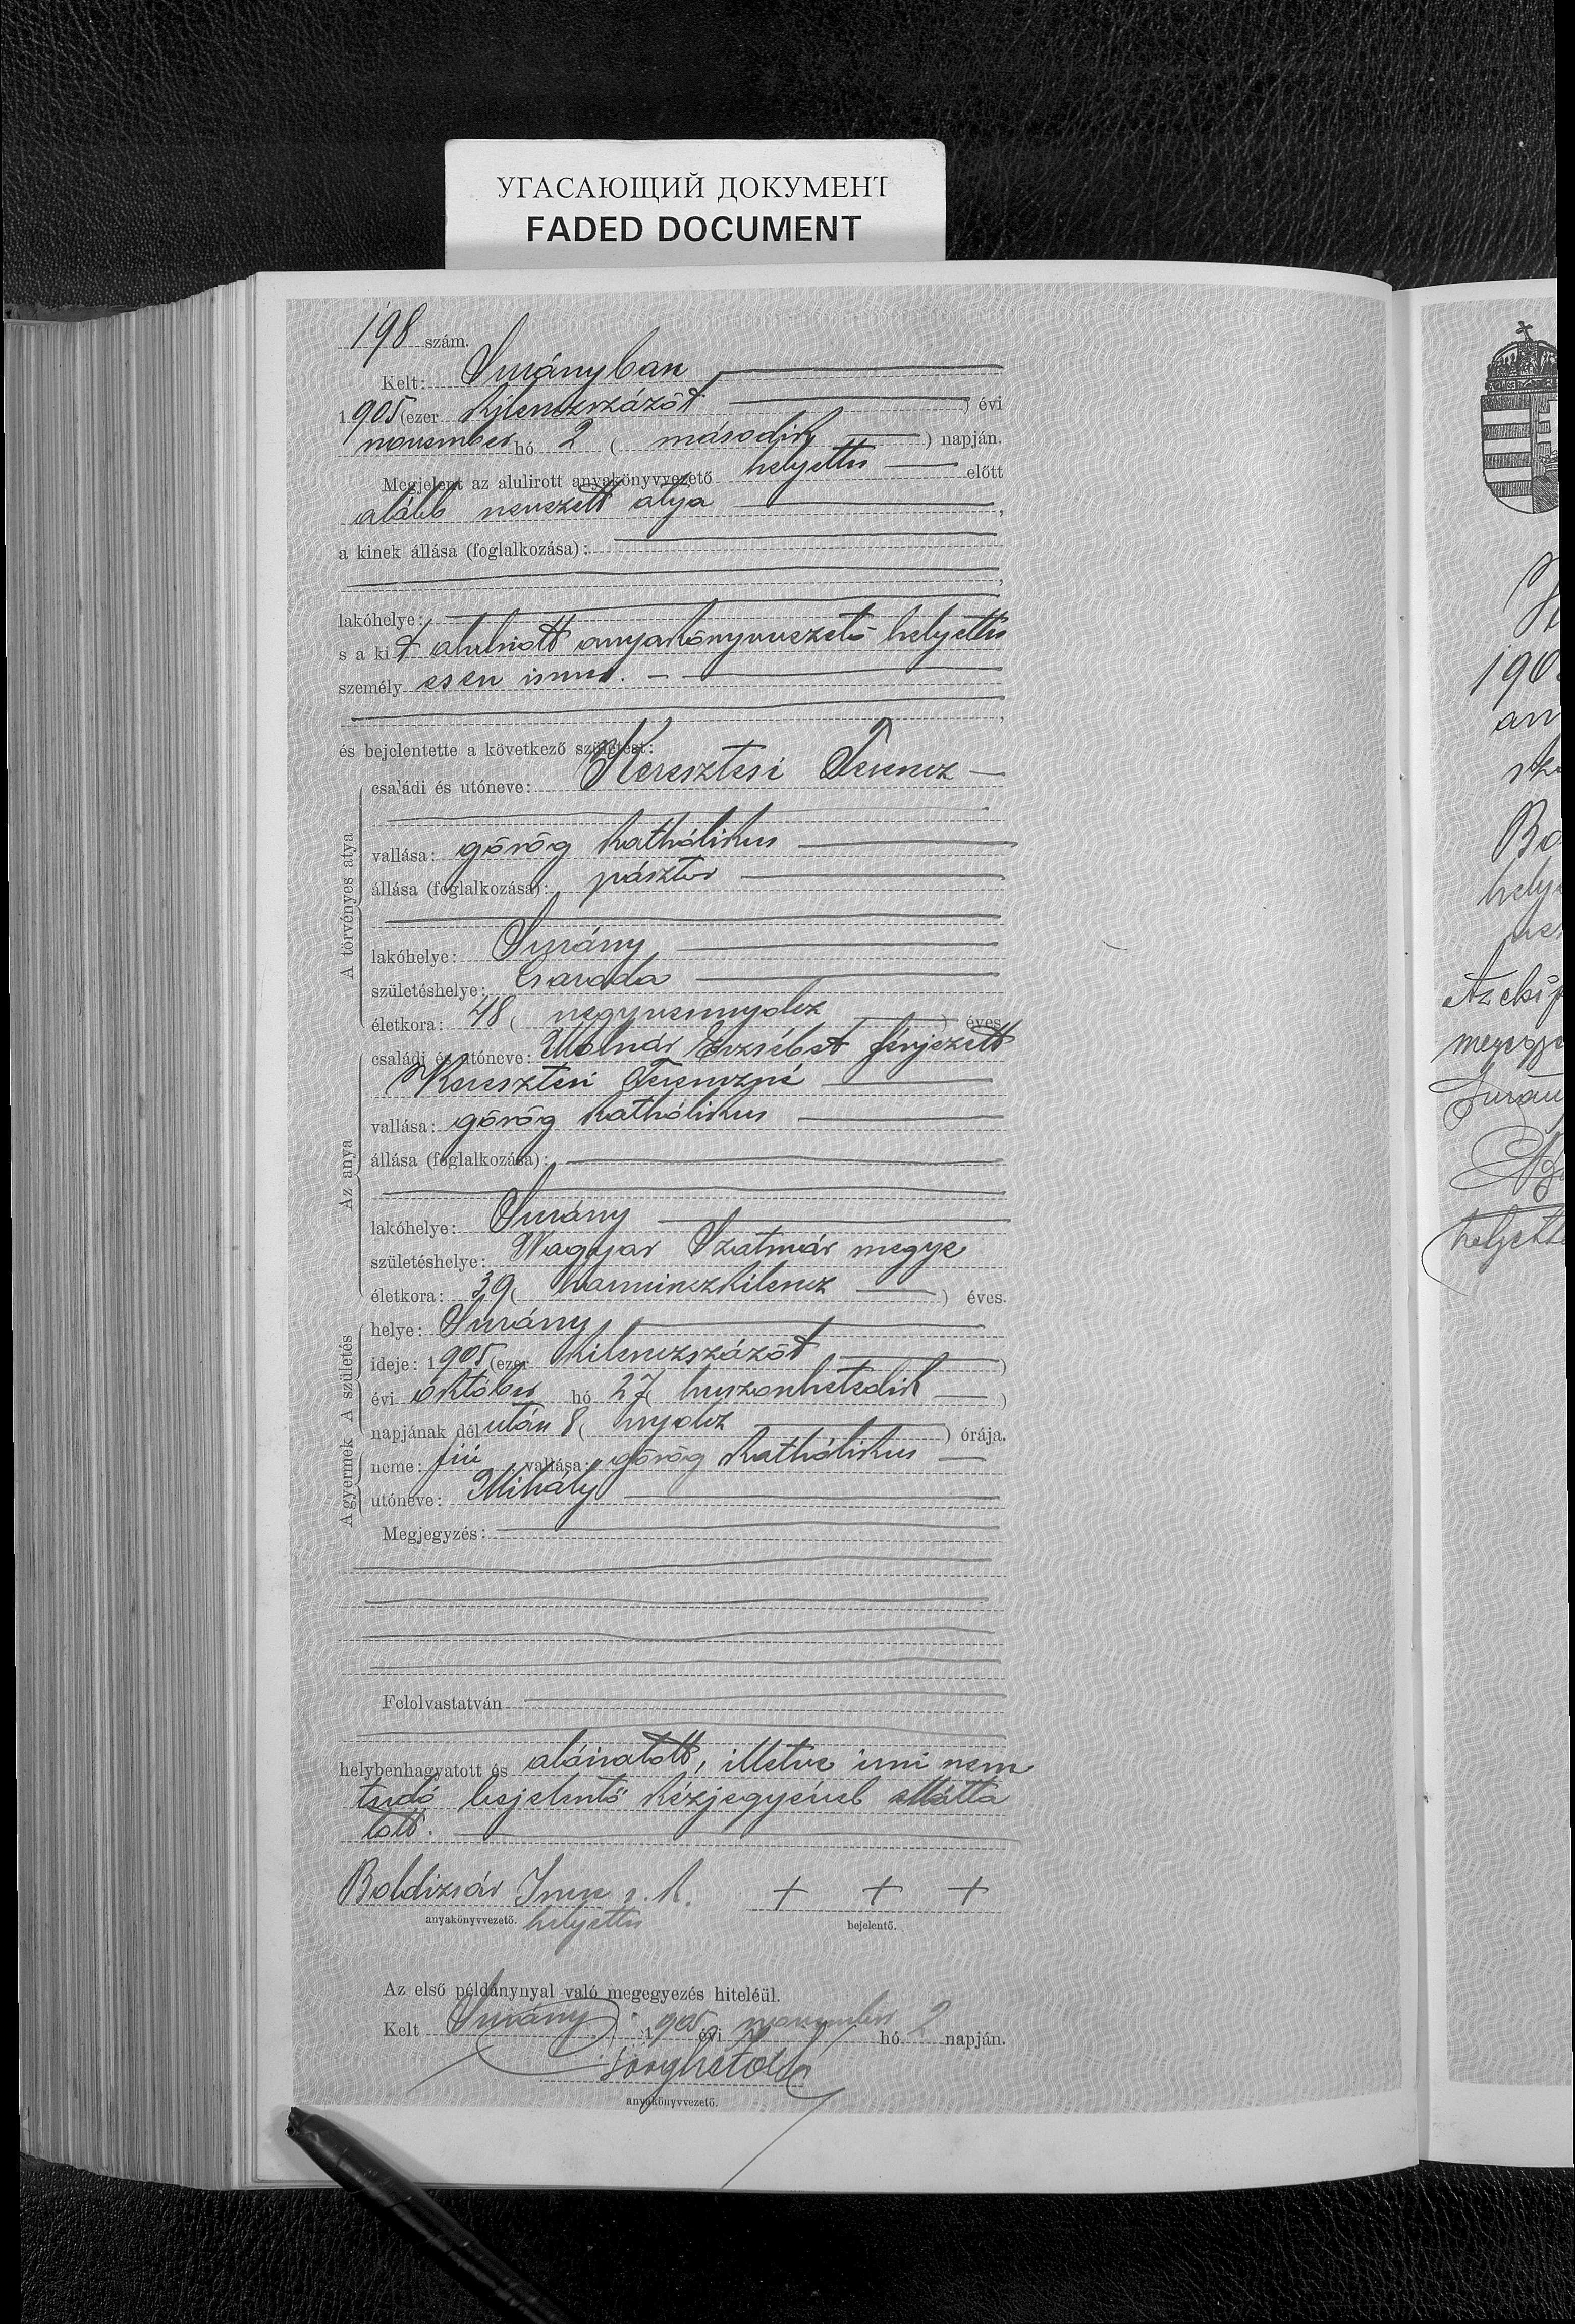 УГАСАЮЩИЙ ДОКУМЕНТ
FADED DOCUMENT
198 szám.
Kelt: Surányban
1905 (ezer kilenczszázöt ) évi
november hó 2 ( második ) napján.
Megjelent az alulirott anyakönyvvezető helyettes előtt
alább nevezett atya ,
a kinek állása (foglalkozása):
,
lakóhelye:
s a kit alulirott anyakönyvvezető helyettes
személyesen ismer. –
,
és bejelentette a következő születést:
A törvényes atya
családi és utóneve: Keresztesi Ferencz
vallása: görög katholikus
állása (foglalkozása): pásztor
lakóhelye: Surány
születéshelye: Csaroda
életkora: 48 ( negyvennyolcz ) éves.
Az anya
családi és utóneve: Molnár Erzsébet férjezett
Keresztesi Ferenczné
vallása: görög katholikus
állása (foglalkozása):
lakóhelye: Surány
születéshelye: Magyar Szatmár megye
életkora: 39 ( harminczkilencz ) éves.
A születés
helye: Surány
ideje: 1905 (ezer kilenczszázöt )
évi október hó 27 ( huszonhetedik )
napjának dél után 8 ( nyolcz ) órája.
A gyermek
neme: fiú vallása: görög katholikus
utóneve: Mihály
Megjegyzés:
Felolvastatván
helybenhagyatott és aláiratott, illetve irni nem
tudó bejelentő kézjegyével ellátta
tott.
Boldizsár Imre s. k. + + +
anyakönyvvezető. helyettes bejelentő.
Az első példánynyal való megegyezés hiteléül.
Kelt Surány 1905 évi november hó 2 napján.
anyakönyvvezető.
190
an
Bo
hely
megegye
Surány
helyette